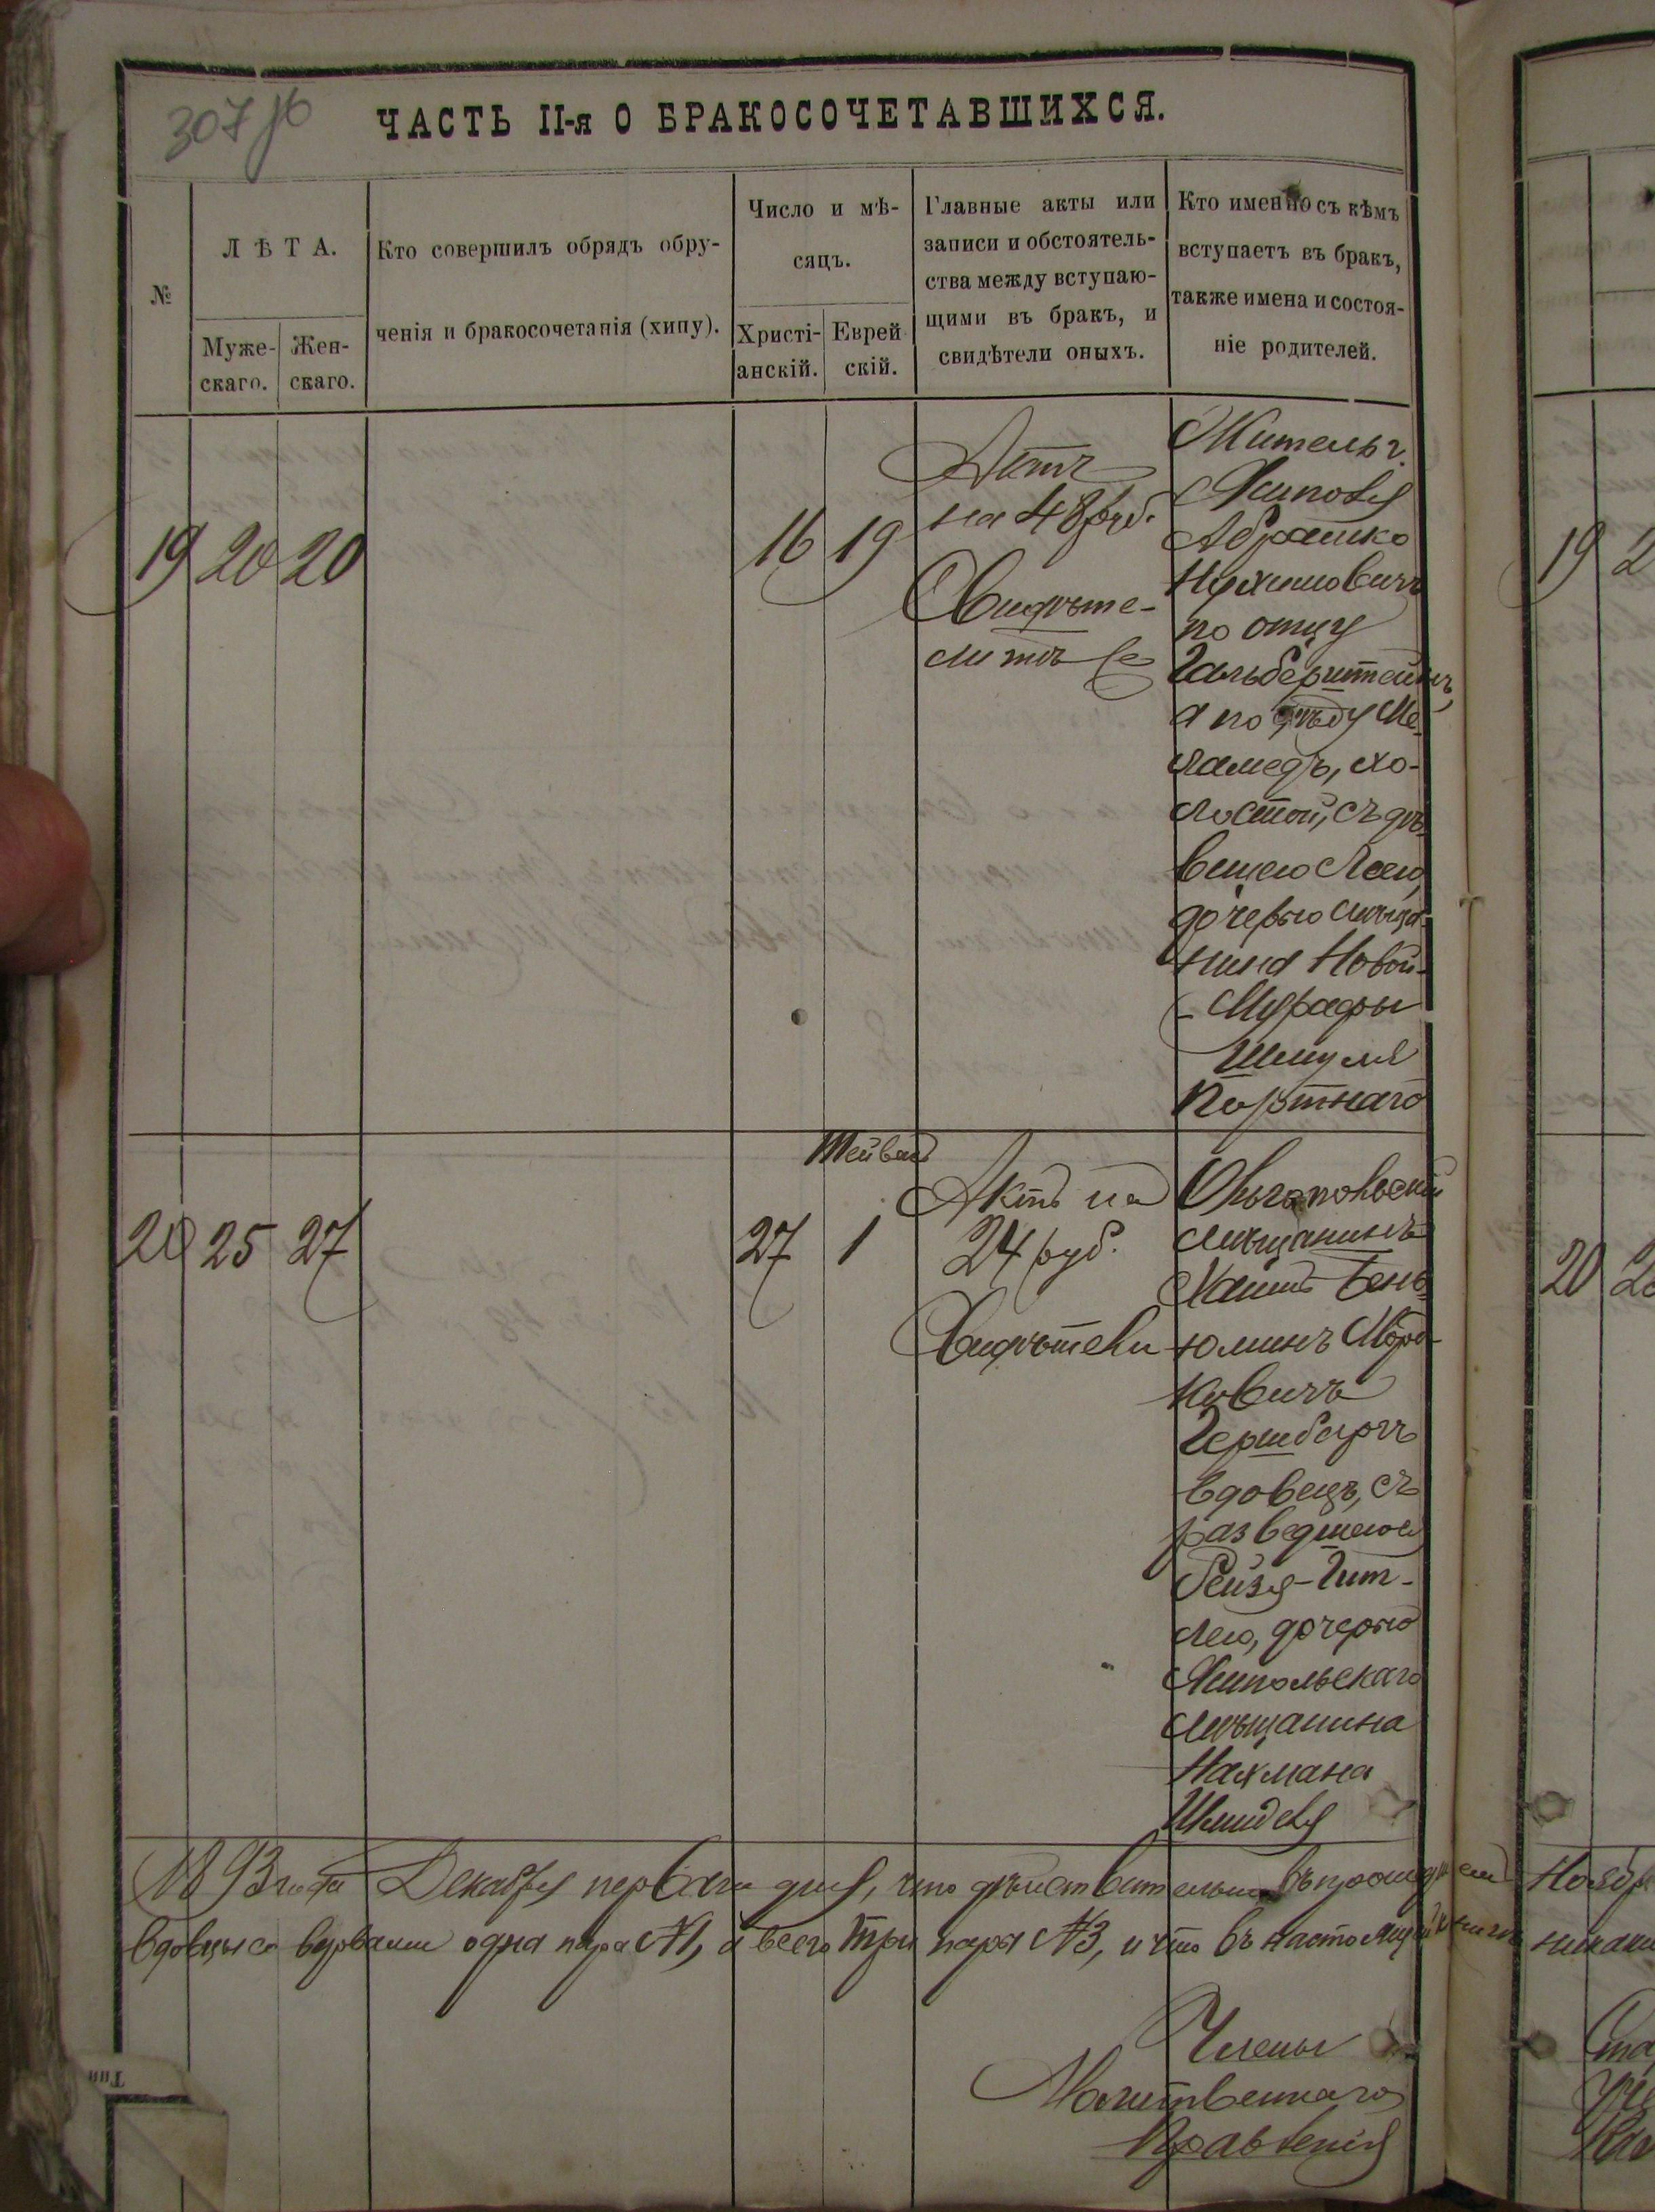 307
ЧАСТЬ II-я О БРАКОСОЧЕТАВШИХСЯ.
№
ЛѢТА.
Муже-
скаго.
Жен-
скаго.
Кто совершилъ обрядъ обру-
ченія и бракосочетанія (хипу).
Число и мѣ-
сяцъ.
Христі-
анскій.
Еврей
скій.
Главные акты или
записи и обстоятель-
ства между вступаю-
щими въ бракъ, и
свидѣтели оныхъ.
Кто именно съ кѣмъ
вступаетъ въ бракъ,
также имена и состоя-
ніе родителей.
19 20 20
16 19
Актъ
на 48 руб.
Свидѣте-
Житель г.
Абрашко
Нухимовичъ
по отцу
Гальберштейнъ,
а по дѣду Ме-
ламедъ, хо-
лостой, съ дѣ-
вицею Леею,
дочерью мѣща-
нина Новой-
-Мурафы
Шмуля
Портнаго
Тейвасъ
20 25 27
27 1
Актъ на
24 руб.
Свидѣтели
Ольгопольскій
мѣщанинъ
Хаимъ-Бень-
юминъ
ковичъ
Гершбергъ
вдовецъ, съ
разведшеюся
Рейзя-Гит-
лею, дочерью
мѣщанина
Нахмана
1893 года Декабря перваго дня, что дѣйствительно въ прошедшемъ Ноябр
вдовцы со вдовами одна пара №1, а всего три пары №3, и что въ настоящей книгѣ никаки
Члены
Молитвеннаго
Правленія
19 2
20 2
Тип